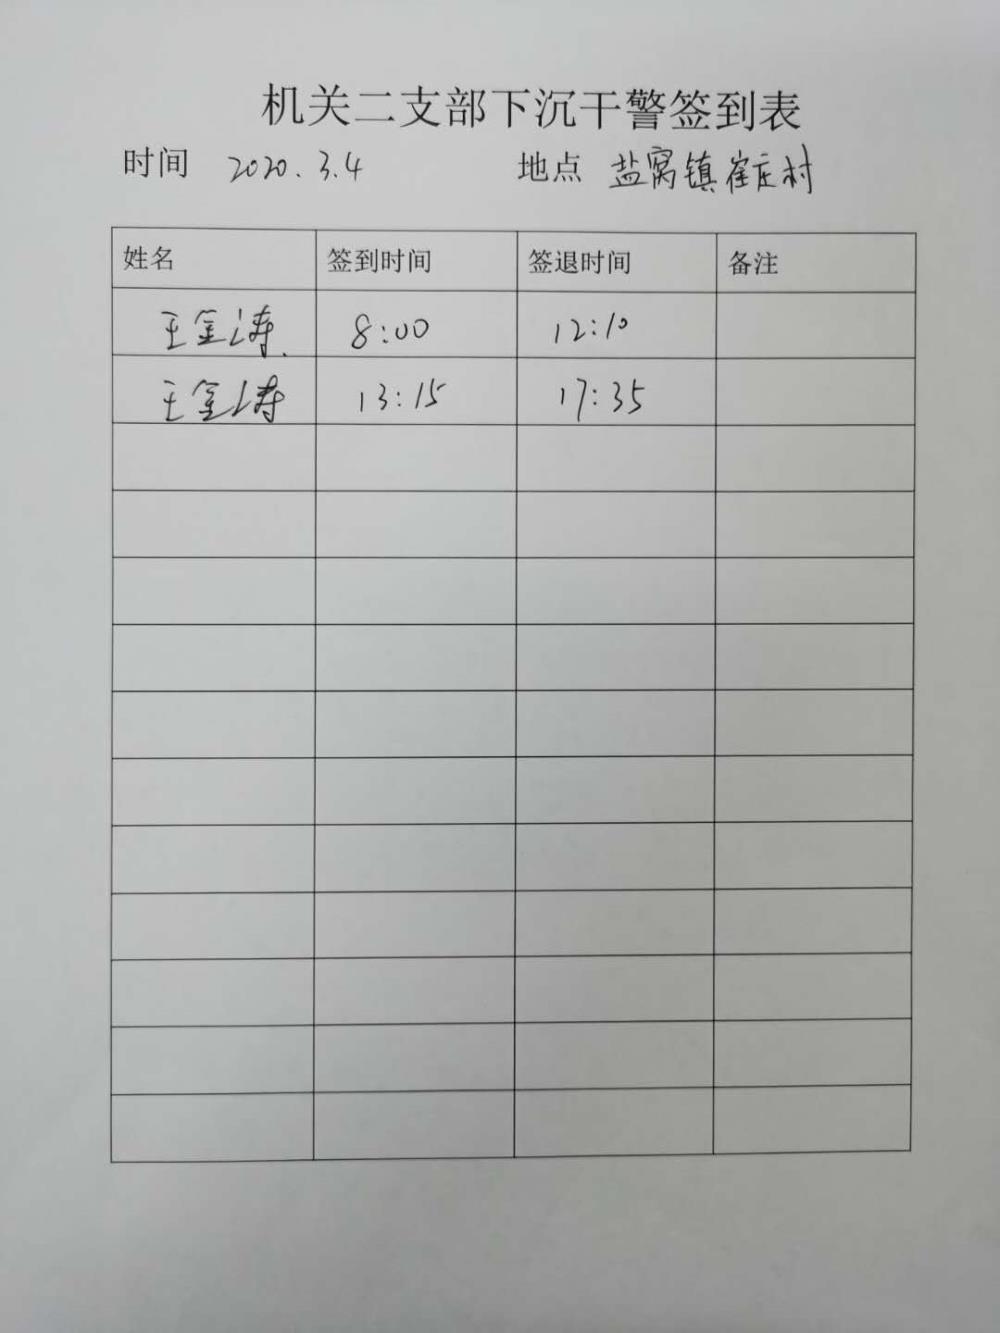 机关二支部下沉干警签到表
时间 2020.3.4 地点 盐窝镇崔庄村
姓名 签到时间 签退时间 备注
王金涛 8:00 12:10
王金涛 13:15 17:35